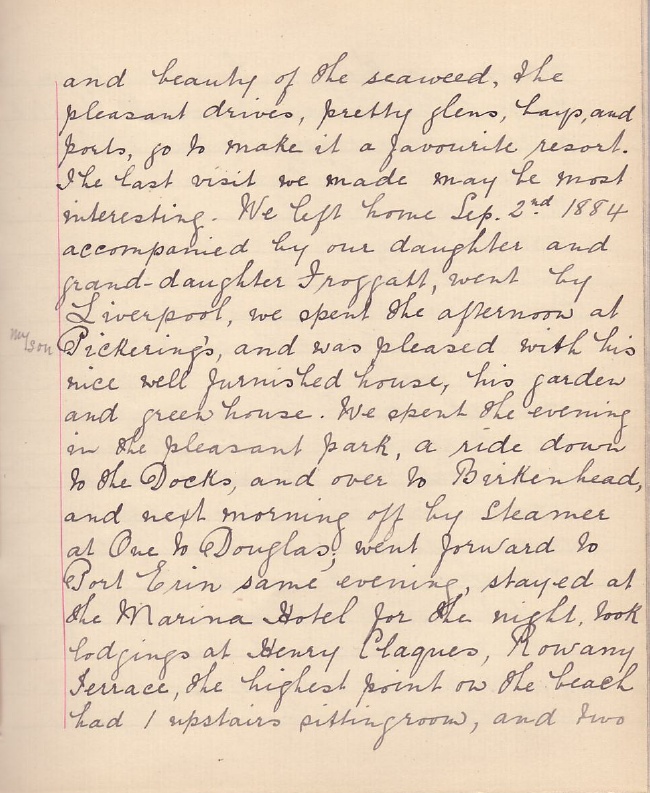 and beauty of the seaweed, the
pleasant drives, pretty glens, bays, and
ports, go to make it a favourite resort.
The last visit we made may be most
interesting. We left home Sep. 2nd 1884
accompanied by our daughter and
grand-daughter Froggatt, went by
Liverpool, we spent the afternoon at
my son
Pickering's, and was pleased with his
nice well furnished house, his garden
and green house. We spent the evening
in the pleasant park, a ride down
to the Docks, and over to Birkenhead,
and next morning off by Steamer
at One to Douglas, went forward to
Port Erin same evening, stayed at
the Marina Hotel for the night, took
lodgings at Henry Clagues, Rowany
Terrace, the highest point on the beach
had 1 upstairs sittingroom, and two